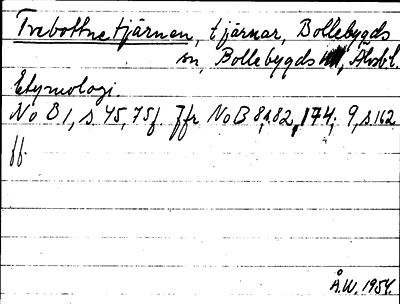 Trebottnetjärnen, tjärnar, Bollebygds
sn, Bollebygds hd, Älvsb.l.
Etymologi.
NoB 1, s. 45, 75f. Jfr NoB 8, s. 82, 174; 9, s. 162
ff.
Å.W. 1954